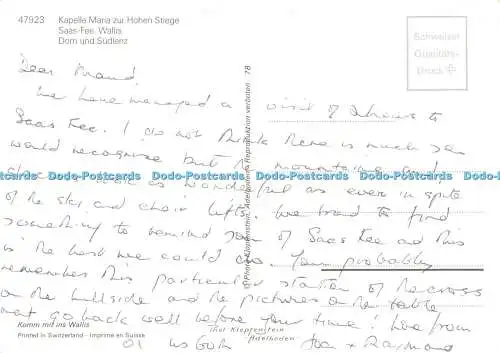 47923
Kapelle Maria zur Hohen Stiege
Saas-Fee, Wallis
Dom und Südlenz
Schweizer
Qualitäts-
Druck
Dear Maud,
We have managed a visit of 2 hours to
Saas Fee. I do not think there is much you
would recognise but the mountains and
as wonderful as ever in spite
of the ski and chair lifts. We tried to find
something to remind you of Saas Fee and this
is the best we could do. You probably
remember this particular station of the cross
on the hillside and the pictures on the
must go back well before your time! Love from
us both & Raymond
78
Reproduktion verboten
Photo Klopfenstein, Adelboden
Dodo-Postcards Dodo-Postcards Dodo-Postcards Dodo-Postcards Dodo-Postcards Dodo-Postcards
Komm mit ins Wallis
Printed in Switzerland - Imprimé en Suisse
Klopfenstein
Adelboden